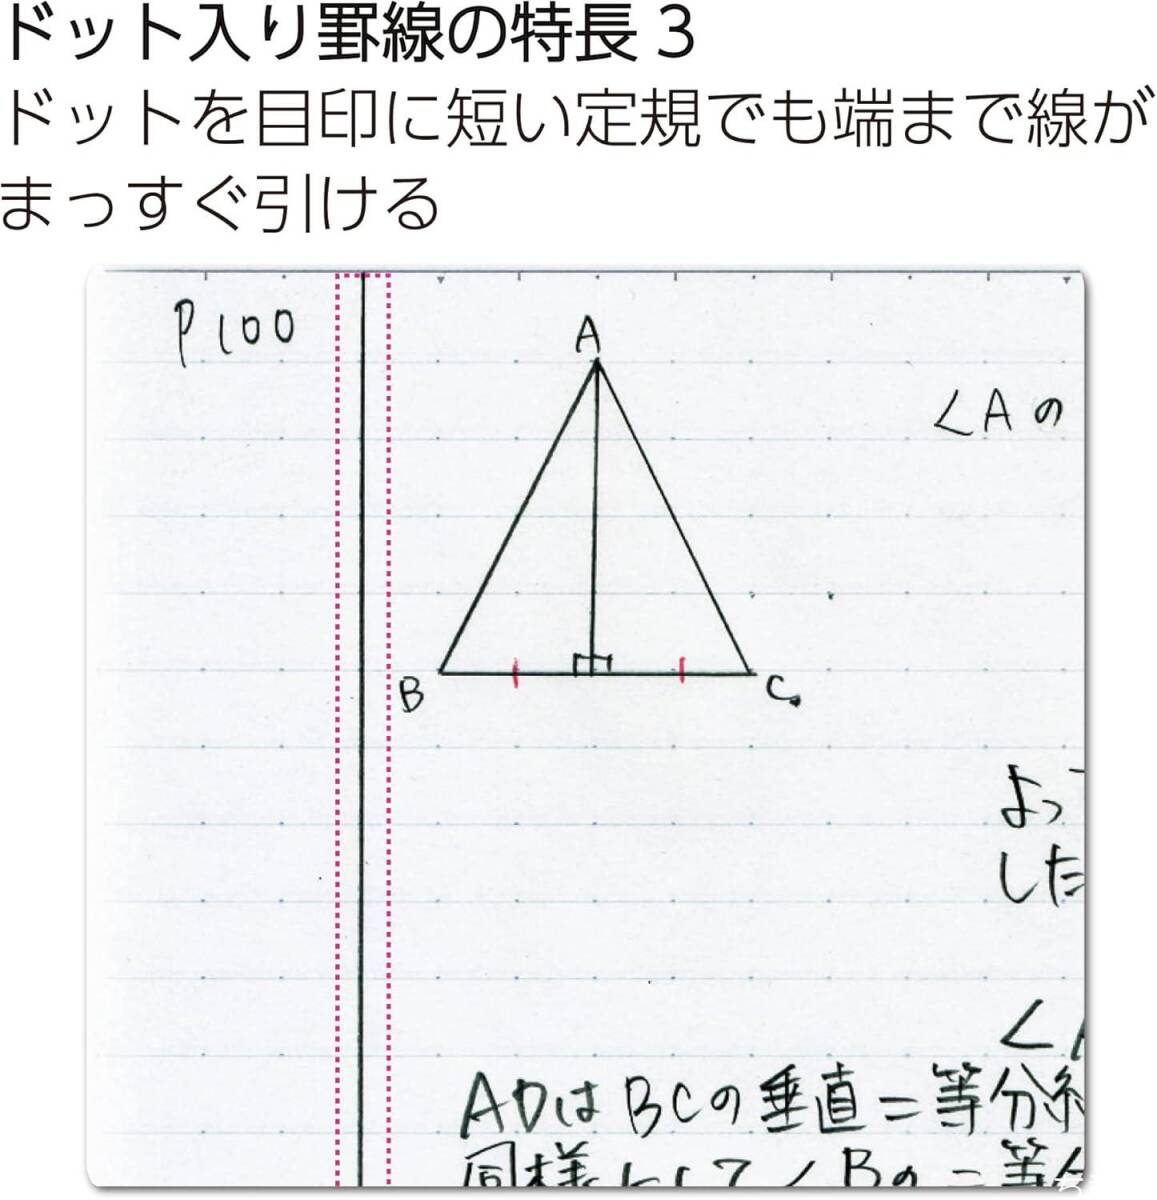 ドット入り罫線の特長 3
ドットを目印に短い定規でも端まで線が
まっすぐ引ける
P100
A
∠Aの
B
C
よっ
した
∠A
ADはBCの垂直二等分
同様にして∠Bの二等分